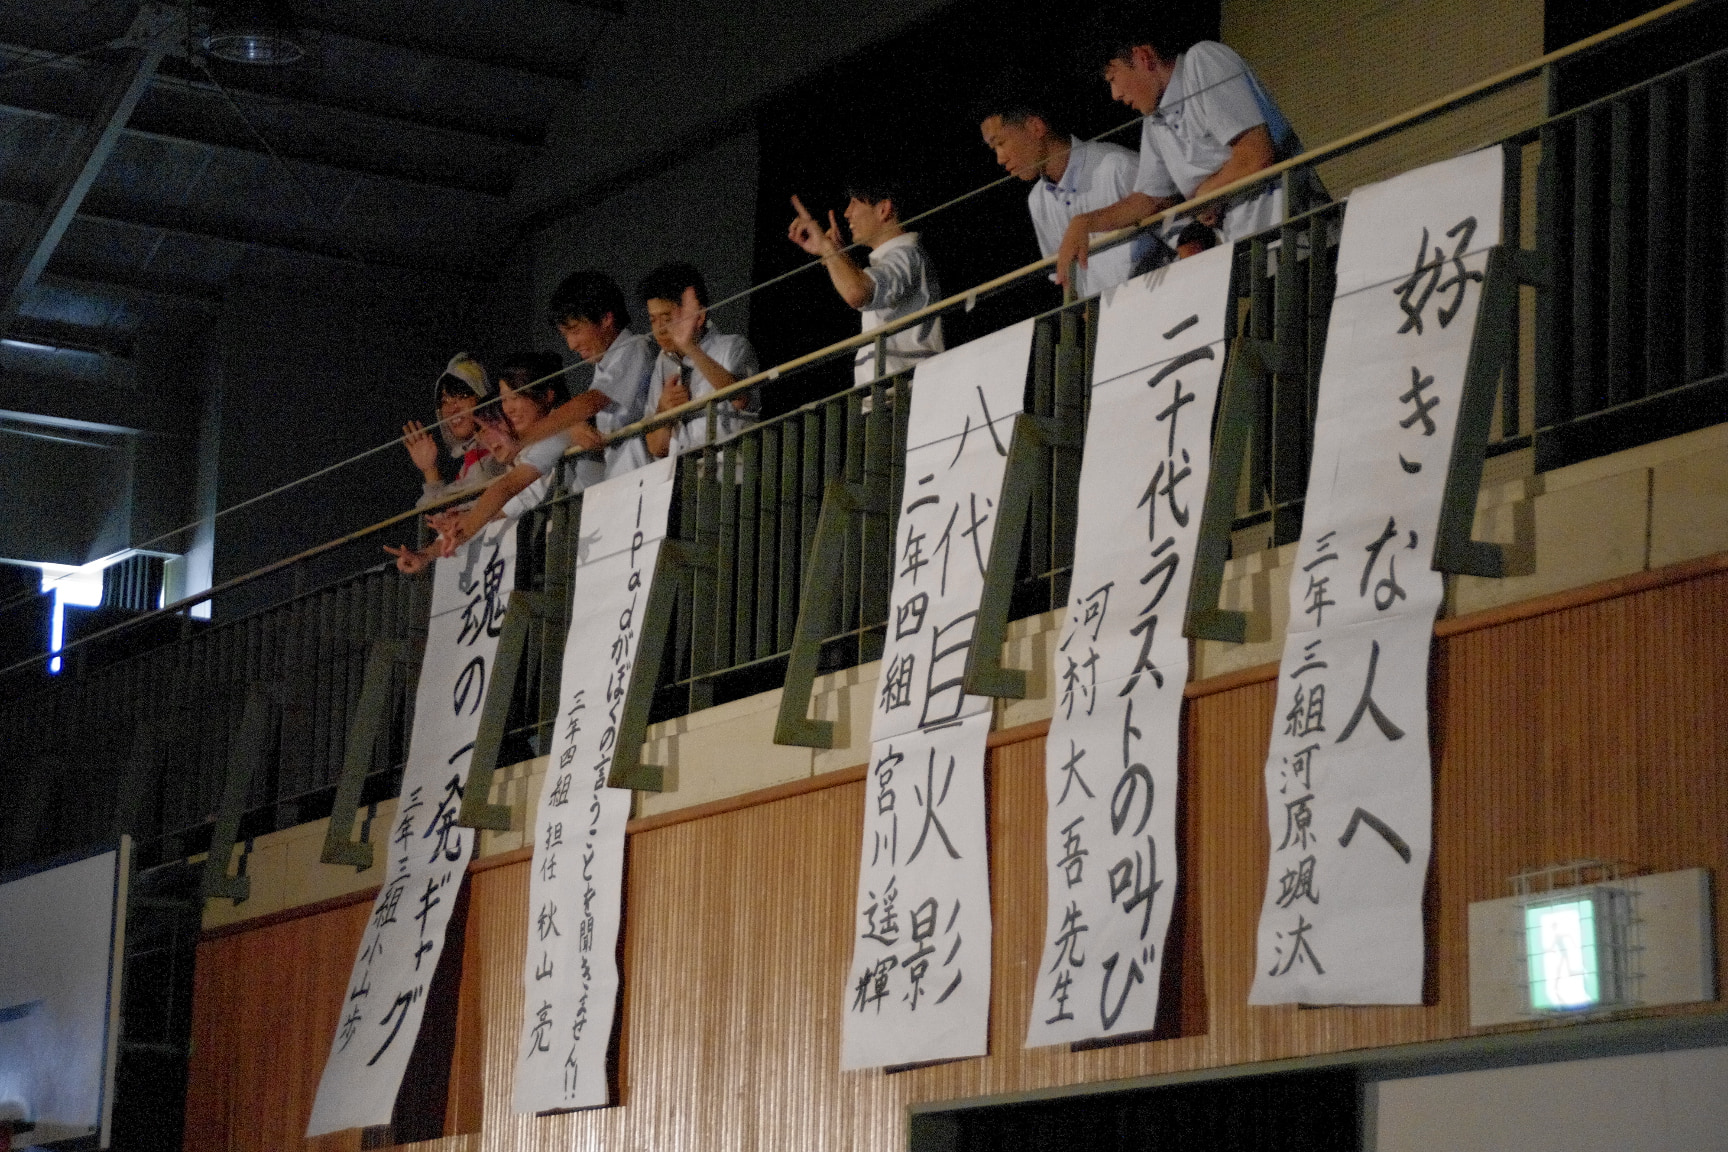 好きな人へ
三年三組河原颯汰
二十代ラストの叫び
河村大吾先生
八代目火影
二年四組 宮川遥輝
ipadがぼくの言うことを聞きません!!
三年四組 担任 秋山亮
魂の一発ギャグ
三年三組小山歩